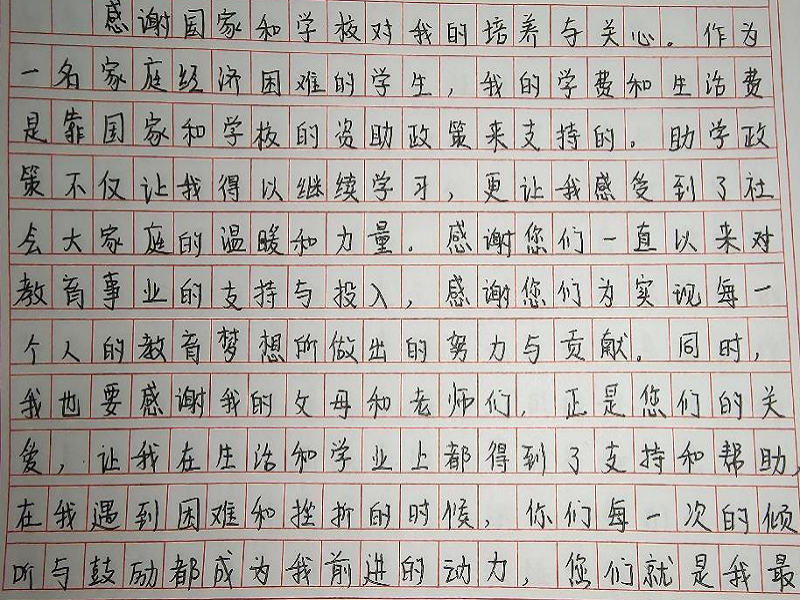 感谢国家和学核对我的培养与关心。作为
一名家庭经济困难的学生，我的学费和生活费
是靠国家和学核的资助政策来支持的。助学政
策不仅让我得以继续学习，更让我感受到了社
会大家庭的温暖和力量。感谢您们一直以来对
教育事业的支持与投入，感谢您们为实现每一
个人的教育梦想所做出的努力与贡献。同时，
我也要感谢我的父母和老师们，正是您们的关
爱，让我在生活和学业上都得到了支持和帮助，
在我遇到困难和挫折的时候，你们每一次的倾
听与鼓励都成为我前进的动力，您们就是我最